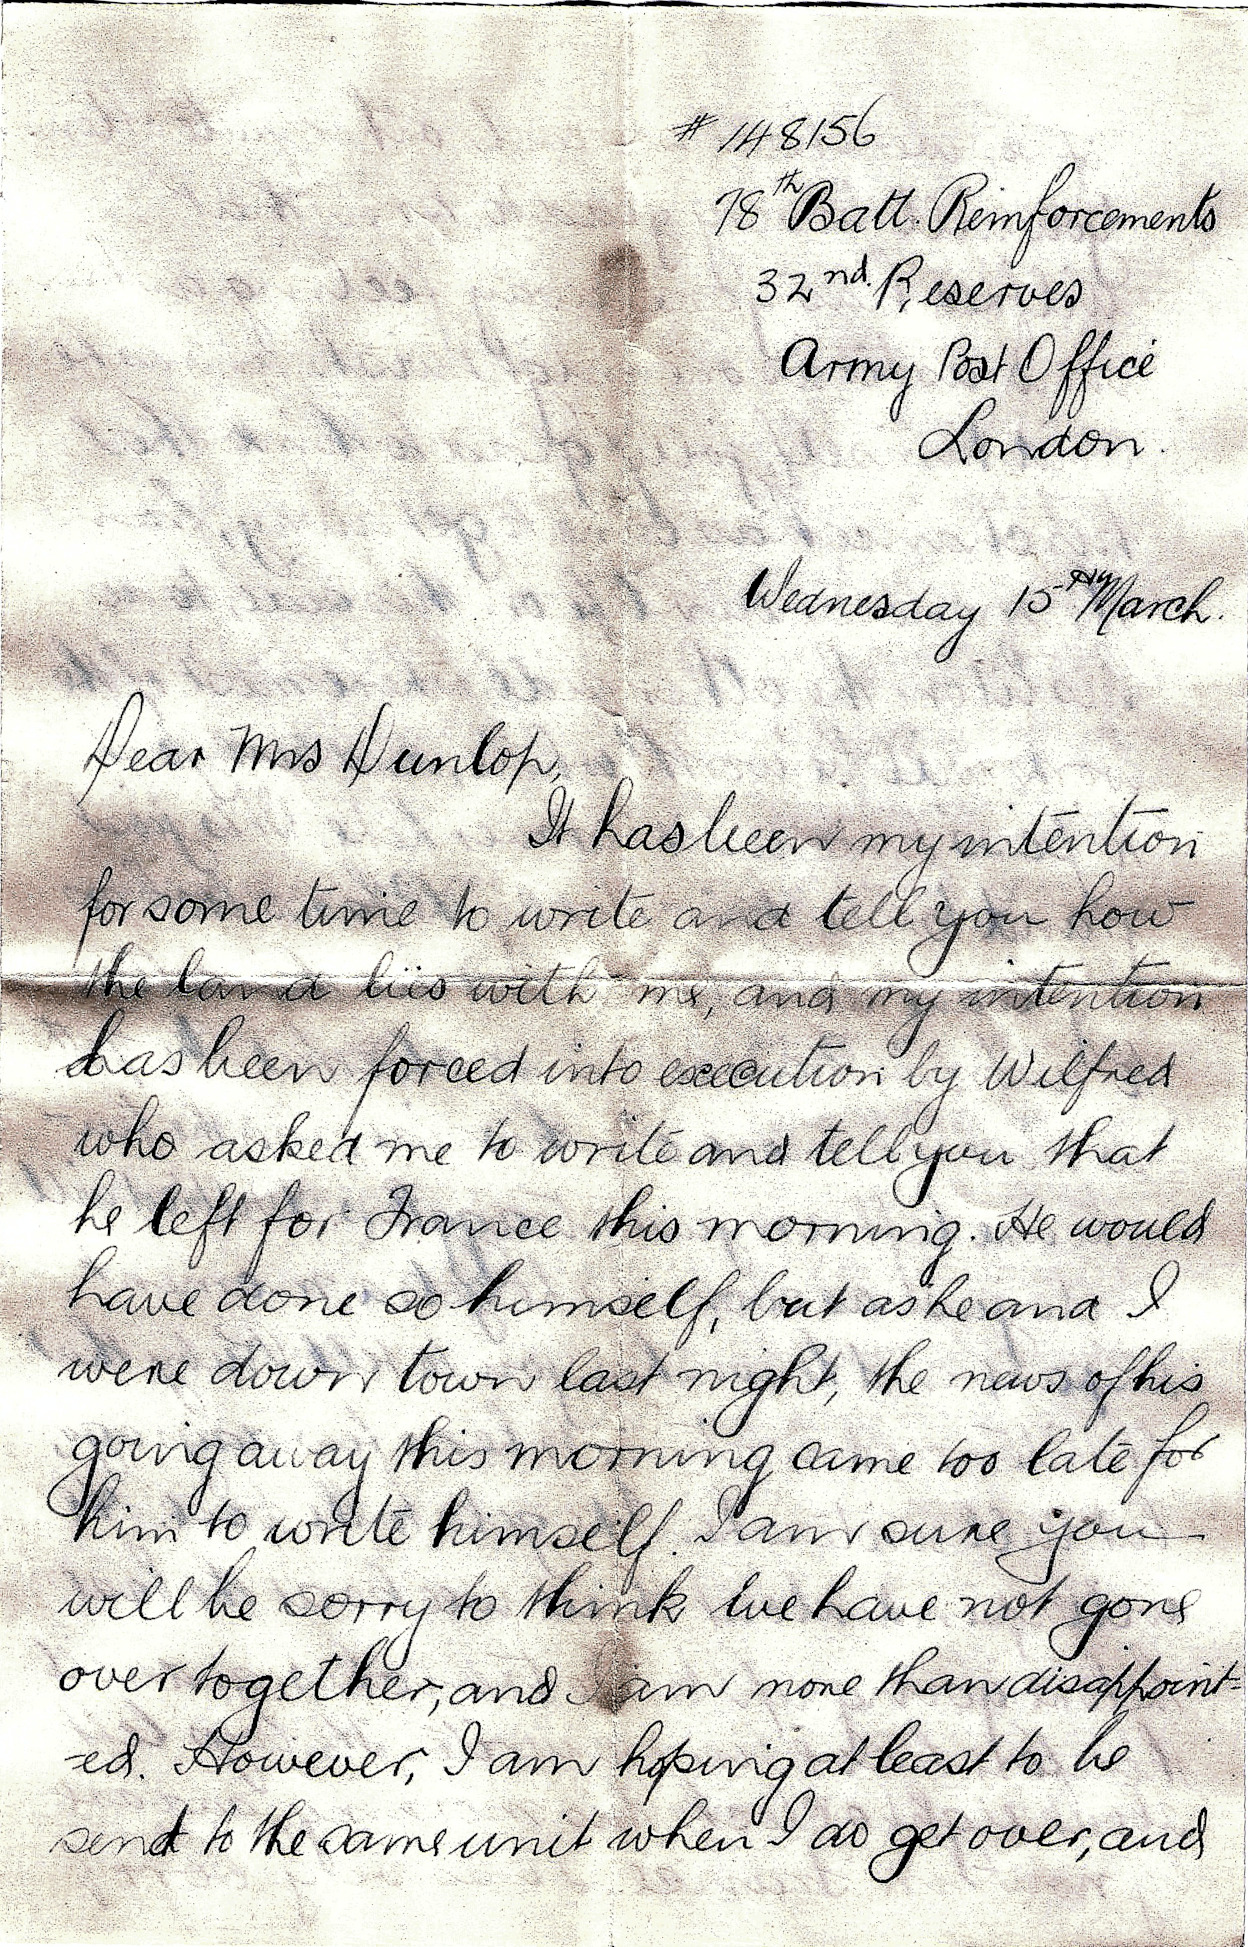 # 148156
78th Batt. Reinforcements
32nd. Reserves
Army Post Office
London.
Wednesday 15th March.
Dear Mrs Dunlop,
It has been my intention
for some time to write and tell you how
the land lies with me, and my intention
has been forced into execution by Wilfred
who asked me to write and tell you that
he left for France this morning. He would
have done so himself, but as he and I
were down town last night, the news of his
going away this morning came too late for
him to write himself. I am sure you
will be sorry to think we have not gone
over together, and I am more than disappoint-
-ed. However, I am hoping at least to be
sent to the same unit when I do get over, and